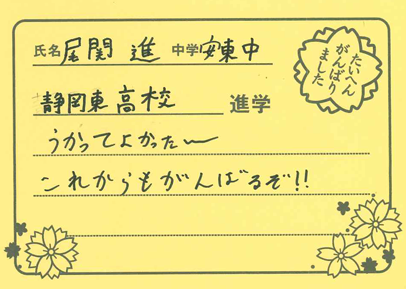 氏名 尾関 進 中学 安東中
静岡東高校 進学
たいへん
がんばり
ました
うかってよかったー
これからもがんばるぞ!!